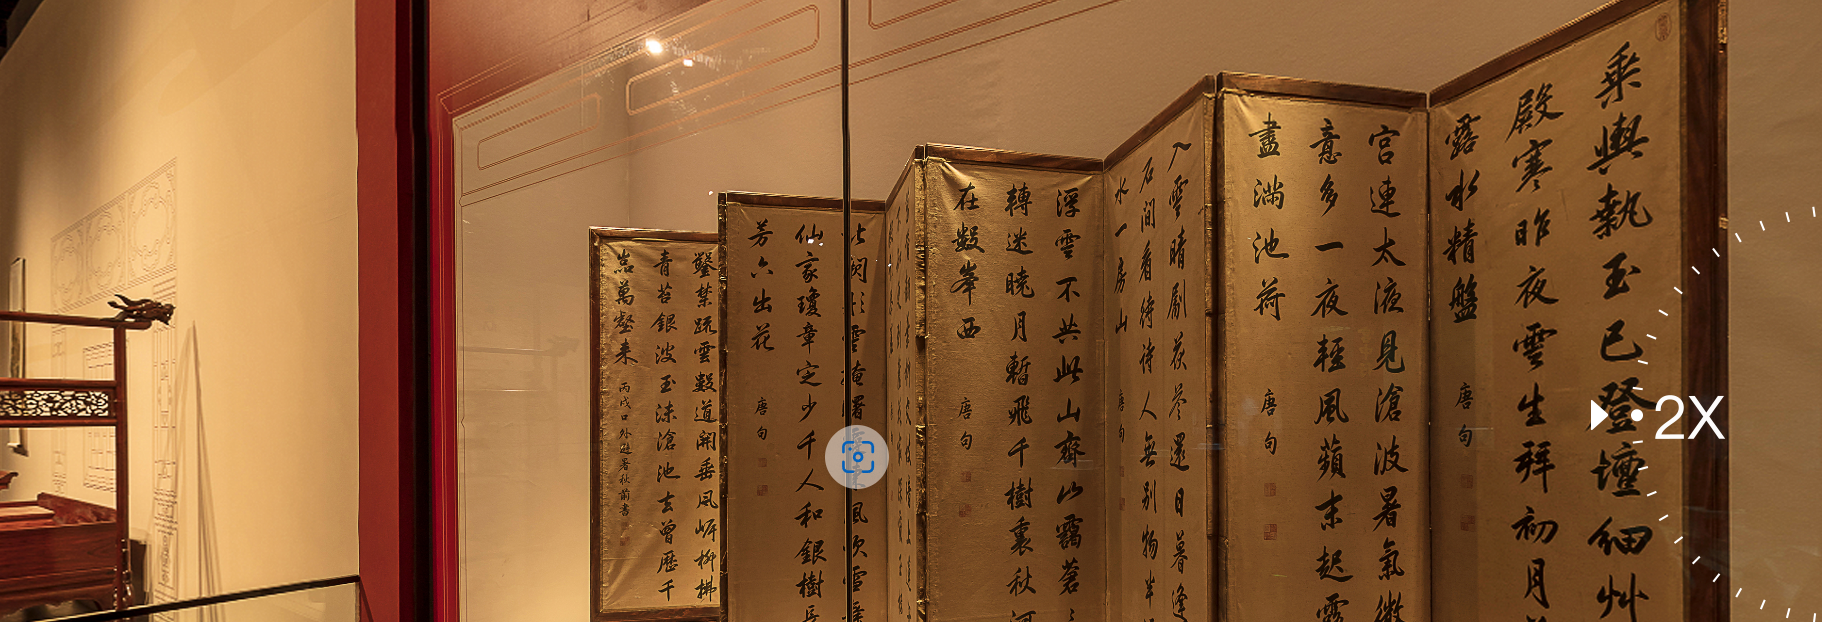 乘輿執玉已登壇細艸
殿寒昨夜雲生拜初月
露水精盤
唐句
宮連太液見滄波暑氣微
意多一夜輕風蘋末起露
盡滿池荷
唐句
入雲晴劚茯苓還日暮逢
石間看待詩人無別物半
水一房山
唐句
浮雲不共此山齊山靄蒼
轉迷曉月暫飛千樹裏秋河
在數峯西
唐句
仙家瓊章定少千人和銀樹長
芳六出花
唐句
鑿禁疏雲數道開垂風岸柳拂
青苔銀波玉沫滄池去曾歷千
嵓萬壑來
2X